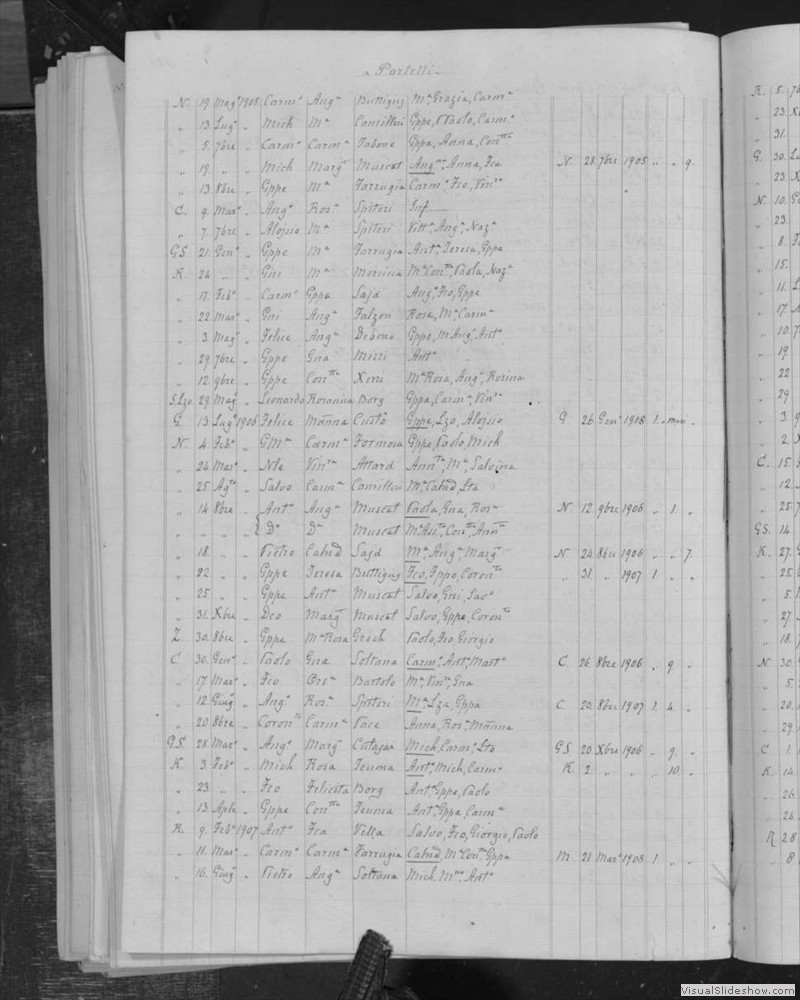 Portelli
N. 19 Magº 1905 Carmº Angª Buttigieg Mª Grazia, Carmª
„ 13 Lugº „ Mich Mª Camilleri Gppe, Paolo, Carmº
„ 5 7bre „ Carmº Carmª Tabone Gppa, Anna, Contta
„ 19 „ „ Mich Margª Muscat Angª, Anna, Fca N. 28 7bre 1905 „ „ 9
„ 13 8bre „ Gppe Mª Farrugia Carmº, Fco, Vinza
C. 9 Marº „ Angº Rosª Spiteri Inf
„ 7 7bre „ Aloisio Mª Spiteri Vittª, Angª, Nazª
G.S. 21 Genº „ Gppe Mª Farrugia Antª, Teresa, Gppa
K. 24 „ „ Gni Mª Mercieca Mª Contta, Paola, Nazª
„ 17 Febº „ Carmº Gppa Sajd Angº, Fco, Gppe
„ 22 Marº „ Gni Angª Falzon Rosa, Mª, Carmª
„ 3 Magº „ Felice Angª Debono Gppe, M Angº, Antº
„ 29 7bre „ Gppe Gna Mizzi Antª
„ 12 9bre „ Gppe Contta Xerri Mª Rosa, Angª, Rosina
S.Lzo 29 Magº „ Leonardo Rosanna Borg Gppa, Carmª, Vinza
G. 13 Lugº 1906 Felice Männa Custò Gppe, Lzo, Aloisio G. 26 Genº 1908 1 „ min „
N. 4 Febº „ G Mª Carmª Formosa Gppe, Paolo, Mich
„ 24 Marº „ Nle Vinza Attard Annta, Mª, Salvina
„ 25 Agto „ Salvo Carmª Camilleri Mª, Catnd, Sta
„ 14 8bre „ Antº Angª Muscat Paola, Gna, Rosª N. 12 9bre 1906 „ 1 „
„ „ „ „ Dº Dª Muscat Mª Assta, Contta, Annta
„ 18 „ „ Pietro Catnd Sajd Mª, Angª, Margª N. 24 8bre 1906 „ „ 7
„ 22 „ „ Gppe Teresa Buttigieg Fco, Fppo, Coronto „ 31 „ 1907 1 „ „
„ 25 „ „ Gppe Antª Muscat Salvo, Gni, Savº
„ 31 Xbre „ Dco Margª Muscat Salvo, Gppe, Coronto
Z. 30 8bre „ Gppe Mª Rosa Grech Paolo, Fco, Giorgio
C. 30 Genº „ Paolo Gna Soltana Carmª, Antª, Martª C. 26 8bre 1906 „ 9 „
„ 17 Marº „ Fco Orsª Bartolo Mª, Vinza, Gna
„ 12 Giugº „ Angº Rosª Spiteri Mª, Lza, Gppa C. 20 8bre 1907 1 4 „
„ 20 8bre „ Coronto Carmª Pace Anna, Rosª, Männa
G.S. 28 Marº „ Angº Margª Cutajar Mich, Carmº, Sto GS 20 Xbre 1906 „ 9 „
K. 3 Febº „ Mich Rosa Teuma Antº, Mich, Carmº K. 2 „ „ „ 10 „
„ 23 „ „ Fco Felicita Borg Antº, Gppe, Paolo
„ 13 Aple „ Gppe Contta Teuma Antª, Gppa, Carmª
R. 9 Febº 1907 Antº Fca Vella Salvo, Fco, Giorgio, Paolo
„ 11 Marº „ Carmº Carmª Farrugia Catnd, Mª Contta, Gppa M. 21 Marº 1908 1 „ „
„ 16 Giugº „ Pietro Angª Soltana Mich, Antº
VisualSlideshow.com